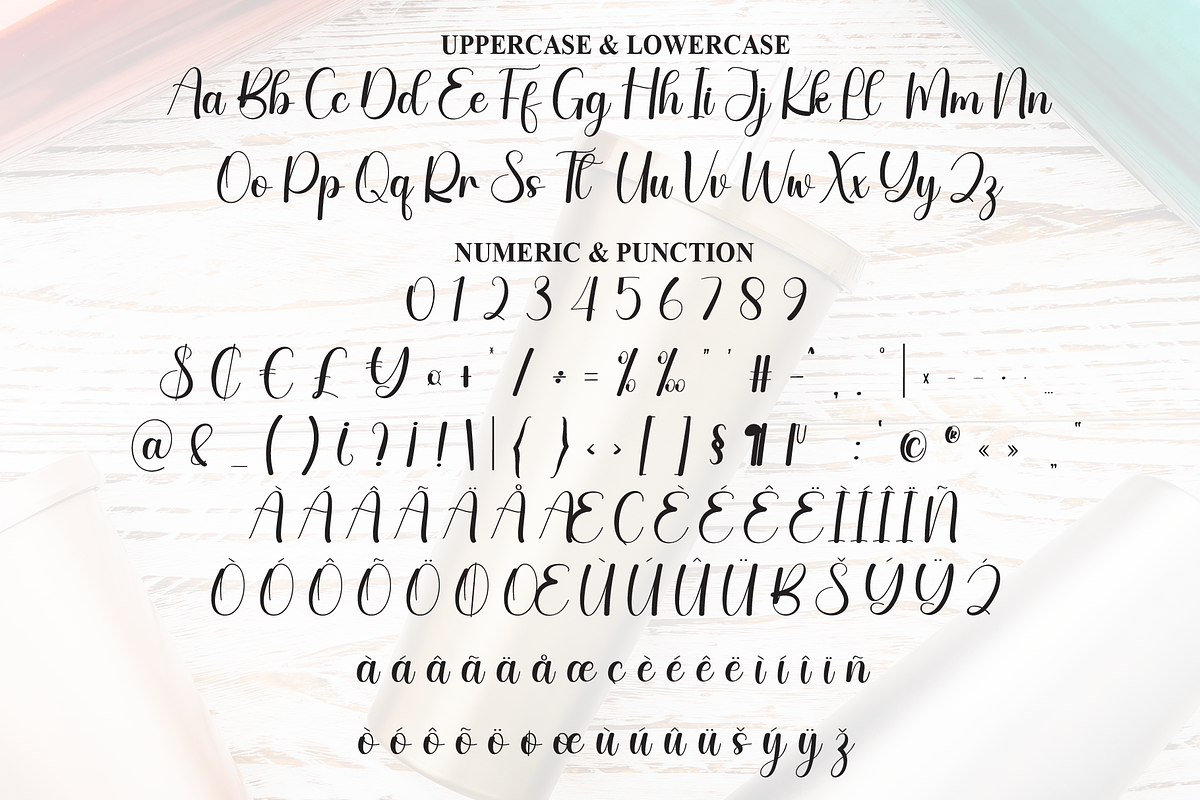 UPPERCASE & LOWERCASE
Aa Bb Cc Dd Ee Ff Gg Hh Ii Jj Kk Ll Mm Nn
Oo Pp Qq Rr Ss Tt Uu Vv Ww Xx Yy Zz
NUMERIC & PUNCTION
0 1 2 3 4 5 6 7 8 9
$ ₵ € £ ¥ ¤ + * / ÷ = % ‰ " ' # – ^ , . ° | × – – • · …
@ & _ ( ) ¿ ? ¡ ! \ | { } ‹ › [ ] § ¶ µ : ‘ © ® « » „ “
À Á Â Ã Ä Å Æ Ç È É Ê Ë Ì Í Î Ï Ñ
Ò Ó Ô Õ Ö Ø Œ Ù Ú Û Ü ß Š Ý Ÿ Ž
à á â ã ä å æ ç è é ê ë ì í î ï ñ
ò ó ô õ ö ø œ ù ú û ü š ý ÿ ž